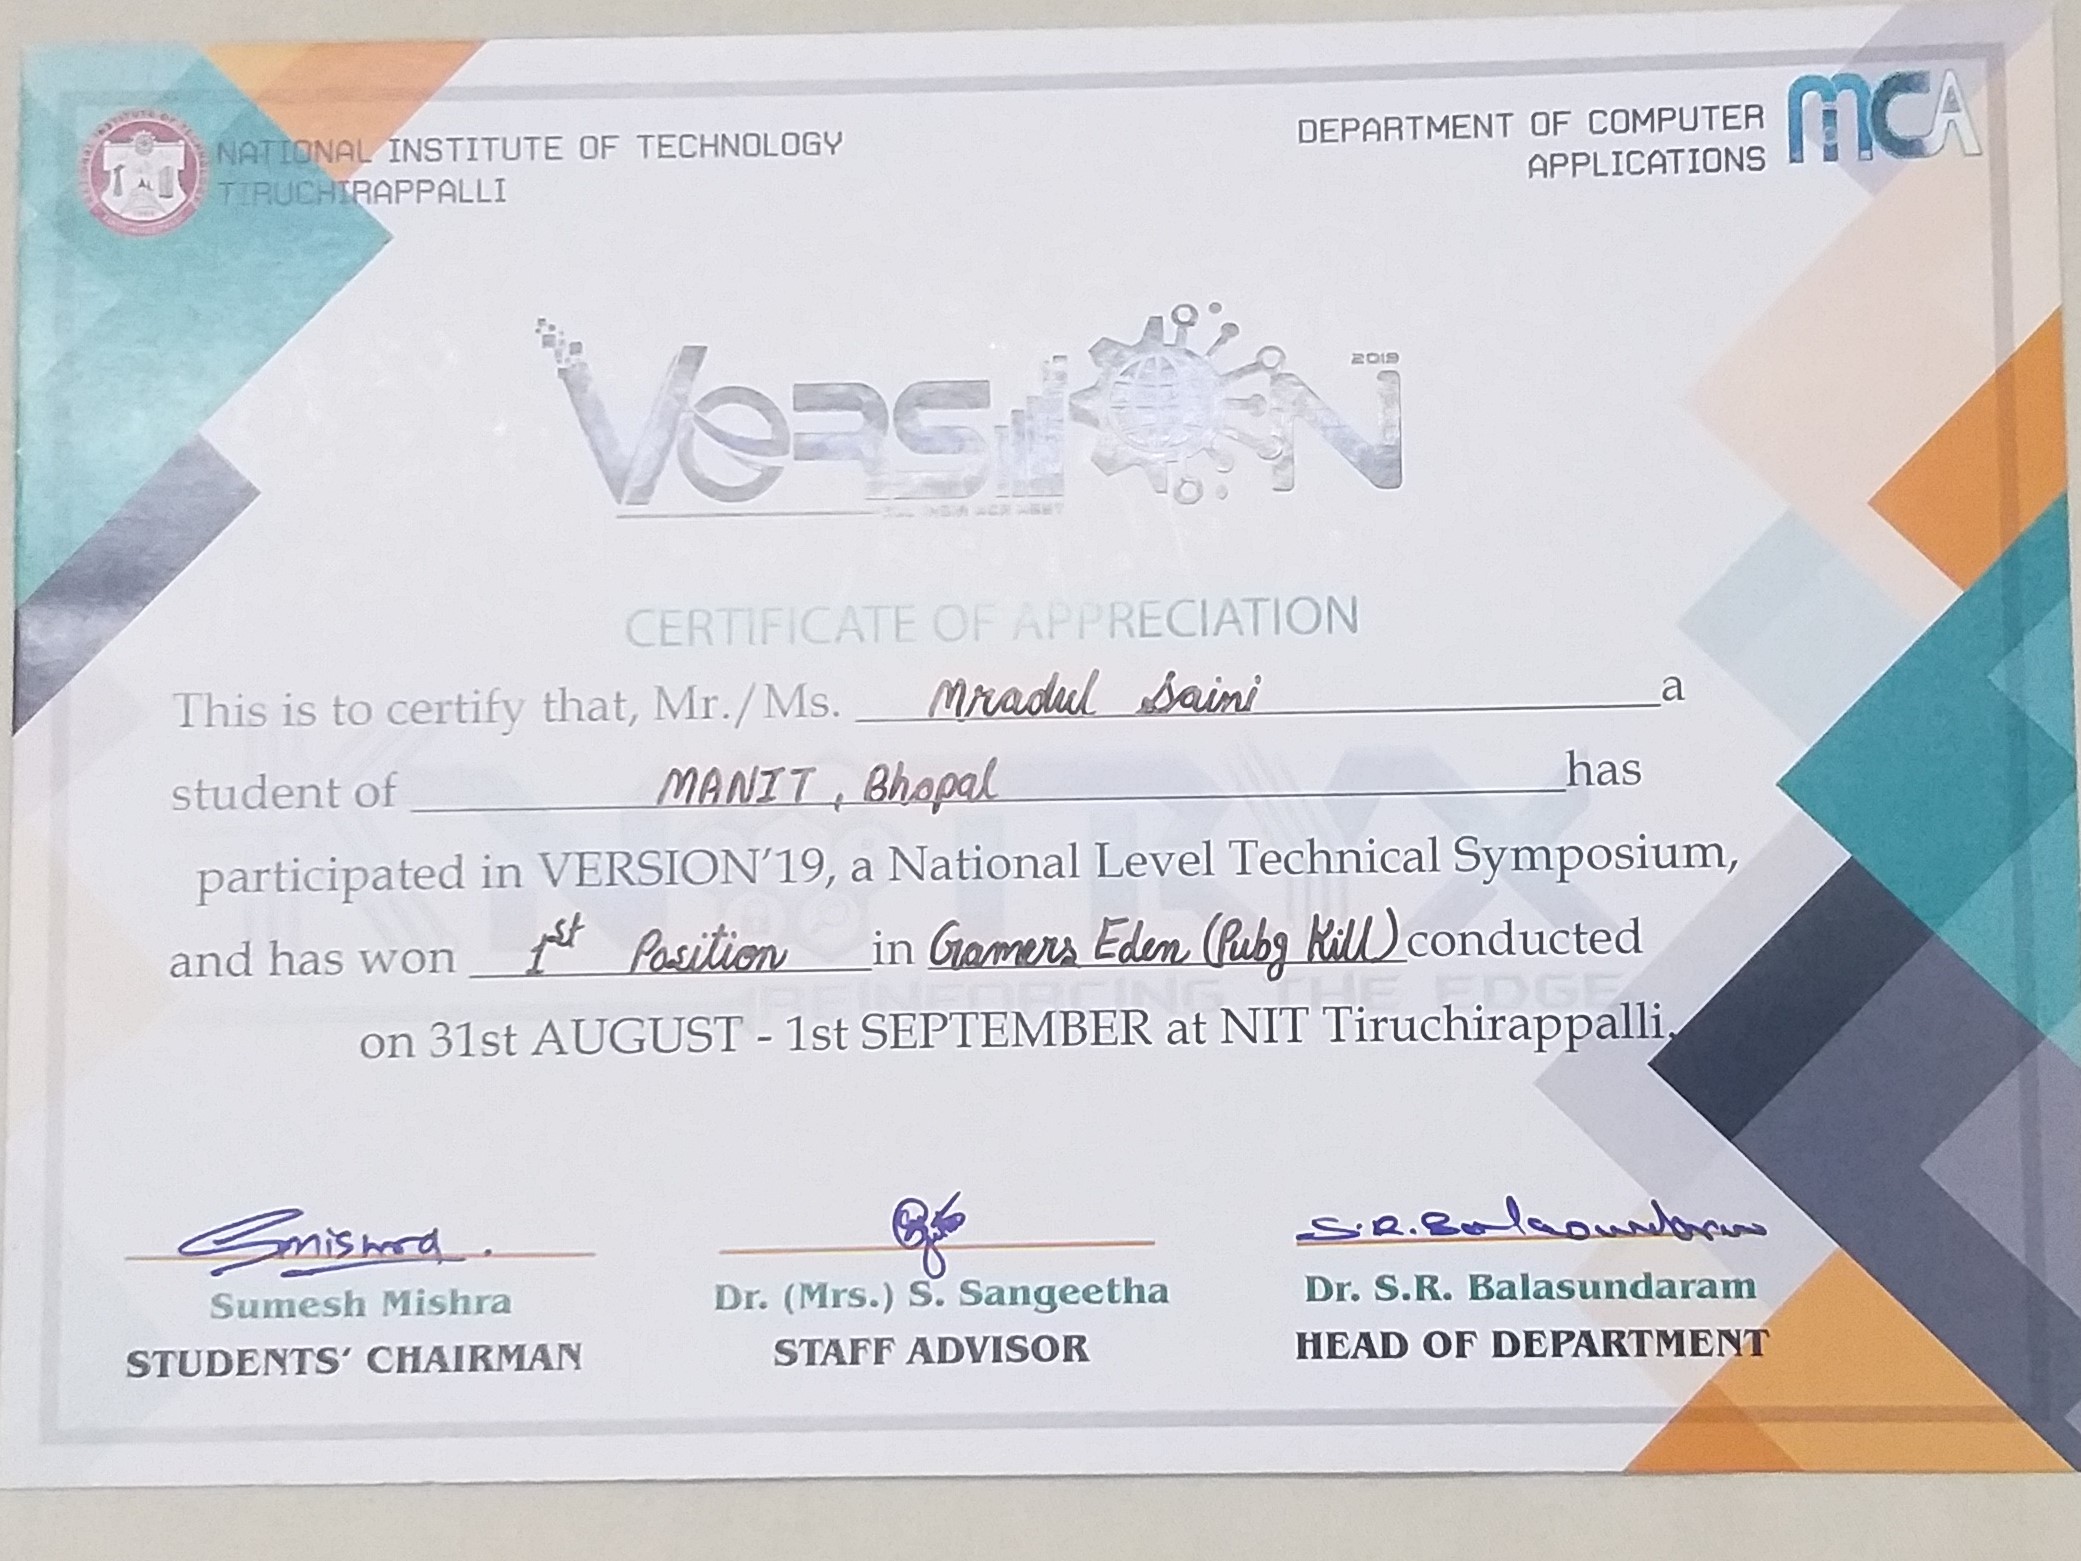 NATIONAL INSTITUTE OF TECHNOLOGY
TIRUCHIRAPPALLI
DEPARTMENT OF COMPUTER
APPLICATIONS
MCA
VERSION
2019
CERTIFICATE OF APPRECIATION
This is to certify that, Mr./Ms. Mradul Saini a
student of MANIT, Bhopal has
participated in VERSION'19, a National Level Technical Symposium,
and has won 1st Position in Gamers Eden (Pubg Kill) conducted
REINFORCING THE EDGE
on 31st AUGUST - 1st SEPTEMBER at NIT Tiruchirappalli.
Smishra.
S.R. Balasundaram
Sumesh Mishra
STUDENTS' CHAIRMAN
Dr. (Mrs.) S. Sangeetha
STAFF ADVISOR
Dr. S.R. Balasundaram
HEAD OF DEPARTMENT